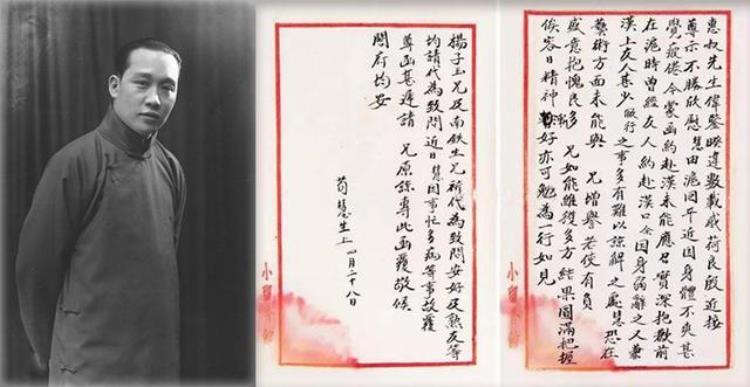 惠叔先生偉鑒暌違數載感荷良殷近接
尊示不勝欣慰慧由滬回平近因身體不爽甚
覺疲倦今蒙函約赴漢未能應召實深抱歉前
在滬時曾經友人約赴漢口因身弱辭之人兼
漢上友人甚少敝行之事多有難以諒解之處慧恐在
藝術方面未能與 兄增譽若使有負
盛意抱愧良多 兄如能維多方結果圓滿把握
俟容日精神好亦可勉為一行如見
楊子玉兄及南鉄生兄祈代為致問安好及熟友等
均請代為致問近日慧因事忙多病等事故覆
尊函甚遲請 兄原諒專此函覆敬候
閤府均安
荀慧生上 四月二十八日